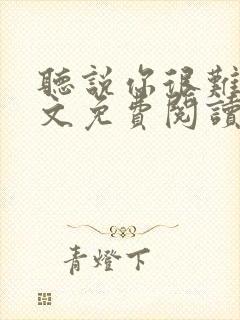 聽說你很難
文免費閱讀
青燈下